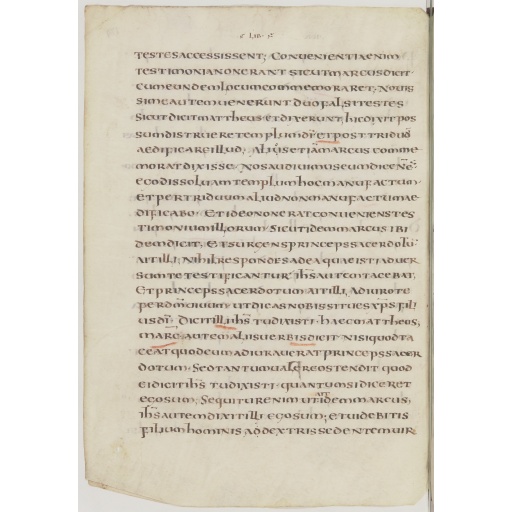 LIB
TESTES ACCESSISSENT; CONUENIENTIA ENIM
TESTIMONIA NON ERANT SICUT MARCUS DICIT
CUM EUNDEM LOCUM COMMEMORARET; NOUIS
SIME AUTEM UENERUNT DUO FALSI TESTES
SICUT DICIT MATTHEUS ET DIXERUNT, HIC DIXIT POS
SUM DISTRUERE TEMPLUM DI ET POST TRIDUŪ
AEDIFICARE ILLUD; ALIOS ETIĀ MARCUS COMME
MORAT DIXISSE NOS AUDIUIMUS EUM DICENTĒ;
EGO DISSOLUAM TEMPLUM HOC MANU FACTUM
ET PER TRIDUUM ALIUD NON MANU FACTUM AE
DIFICABO; ET IDEO NON ERAT CONUENIENS TES
TIMONIUM ILLORUM SICUT IDEM MARCUS IBI
DEM DICIT, ET SURGENS PRINCEPS SACERDOTŪ
AIT ILLI; NIHIL RESPONDES AD EA QUAE ISTI ADUER
SUM TE TESTIFICANTUR; IHS AUTEM TACEBAT,
ET PRINCEPS SACERDOTUM AIT ILLI, ADIURO TE
PER DM UIUUM UT DICAS NOBIS SI TU ES XPS FILI
US DI; DICIT ILLI IHS TU DIXISTI; HAEC MATTHEOS,
MARC AUTEM ALIIS UERBIS DICIT NISI QUOD TA
CEAT QUOD EUM ADIURAUERAT PRINCEPS SACER
DOTUM; SED TANTUM UALERE OSTENDIT QUOD
EI DICIT IHS TU DIXISTI QUANTUM SI DICERET
EGO SUM; SEQUITUR ENIM UT AIT IDEM MARCUS,
IHS AUTEM DIXIT ILLI EGO SUM; ET UIDEBITIS
FILIUM HOMINIS AD DEXTRIS SEDENTEM UIR